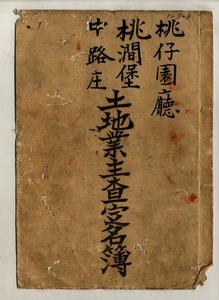 桃仔園廳
桃澗堡
中路庄
土地業主查定名簿